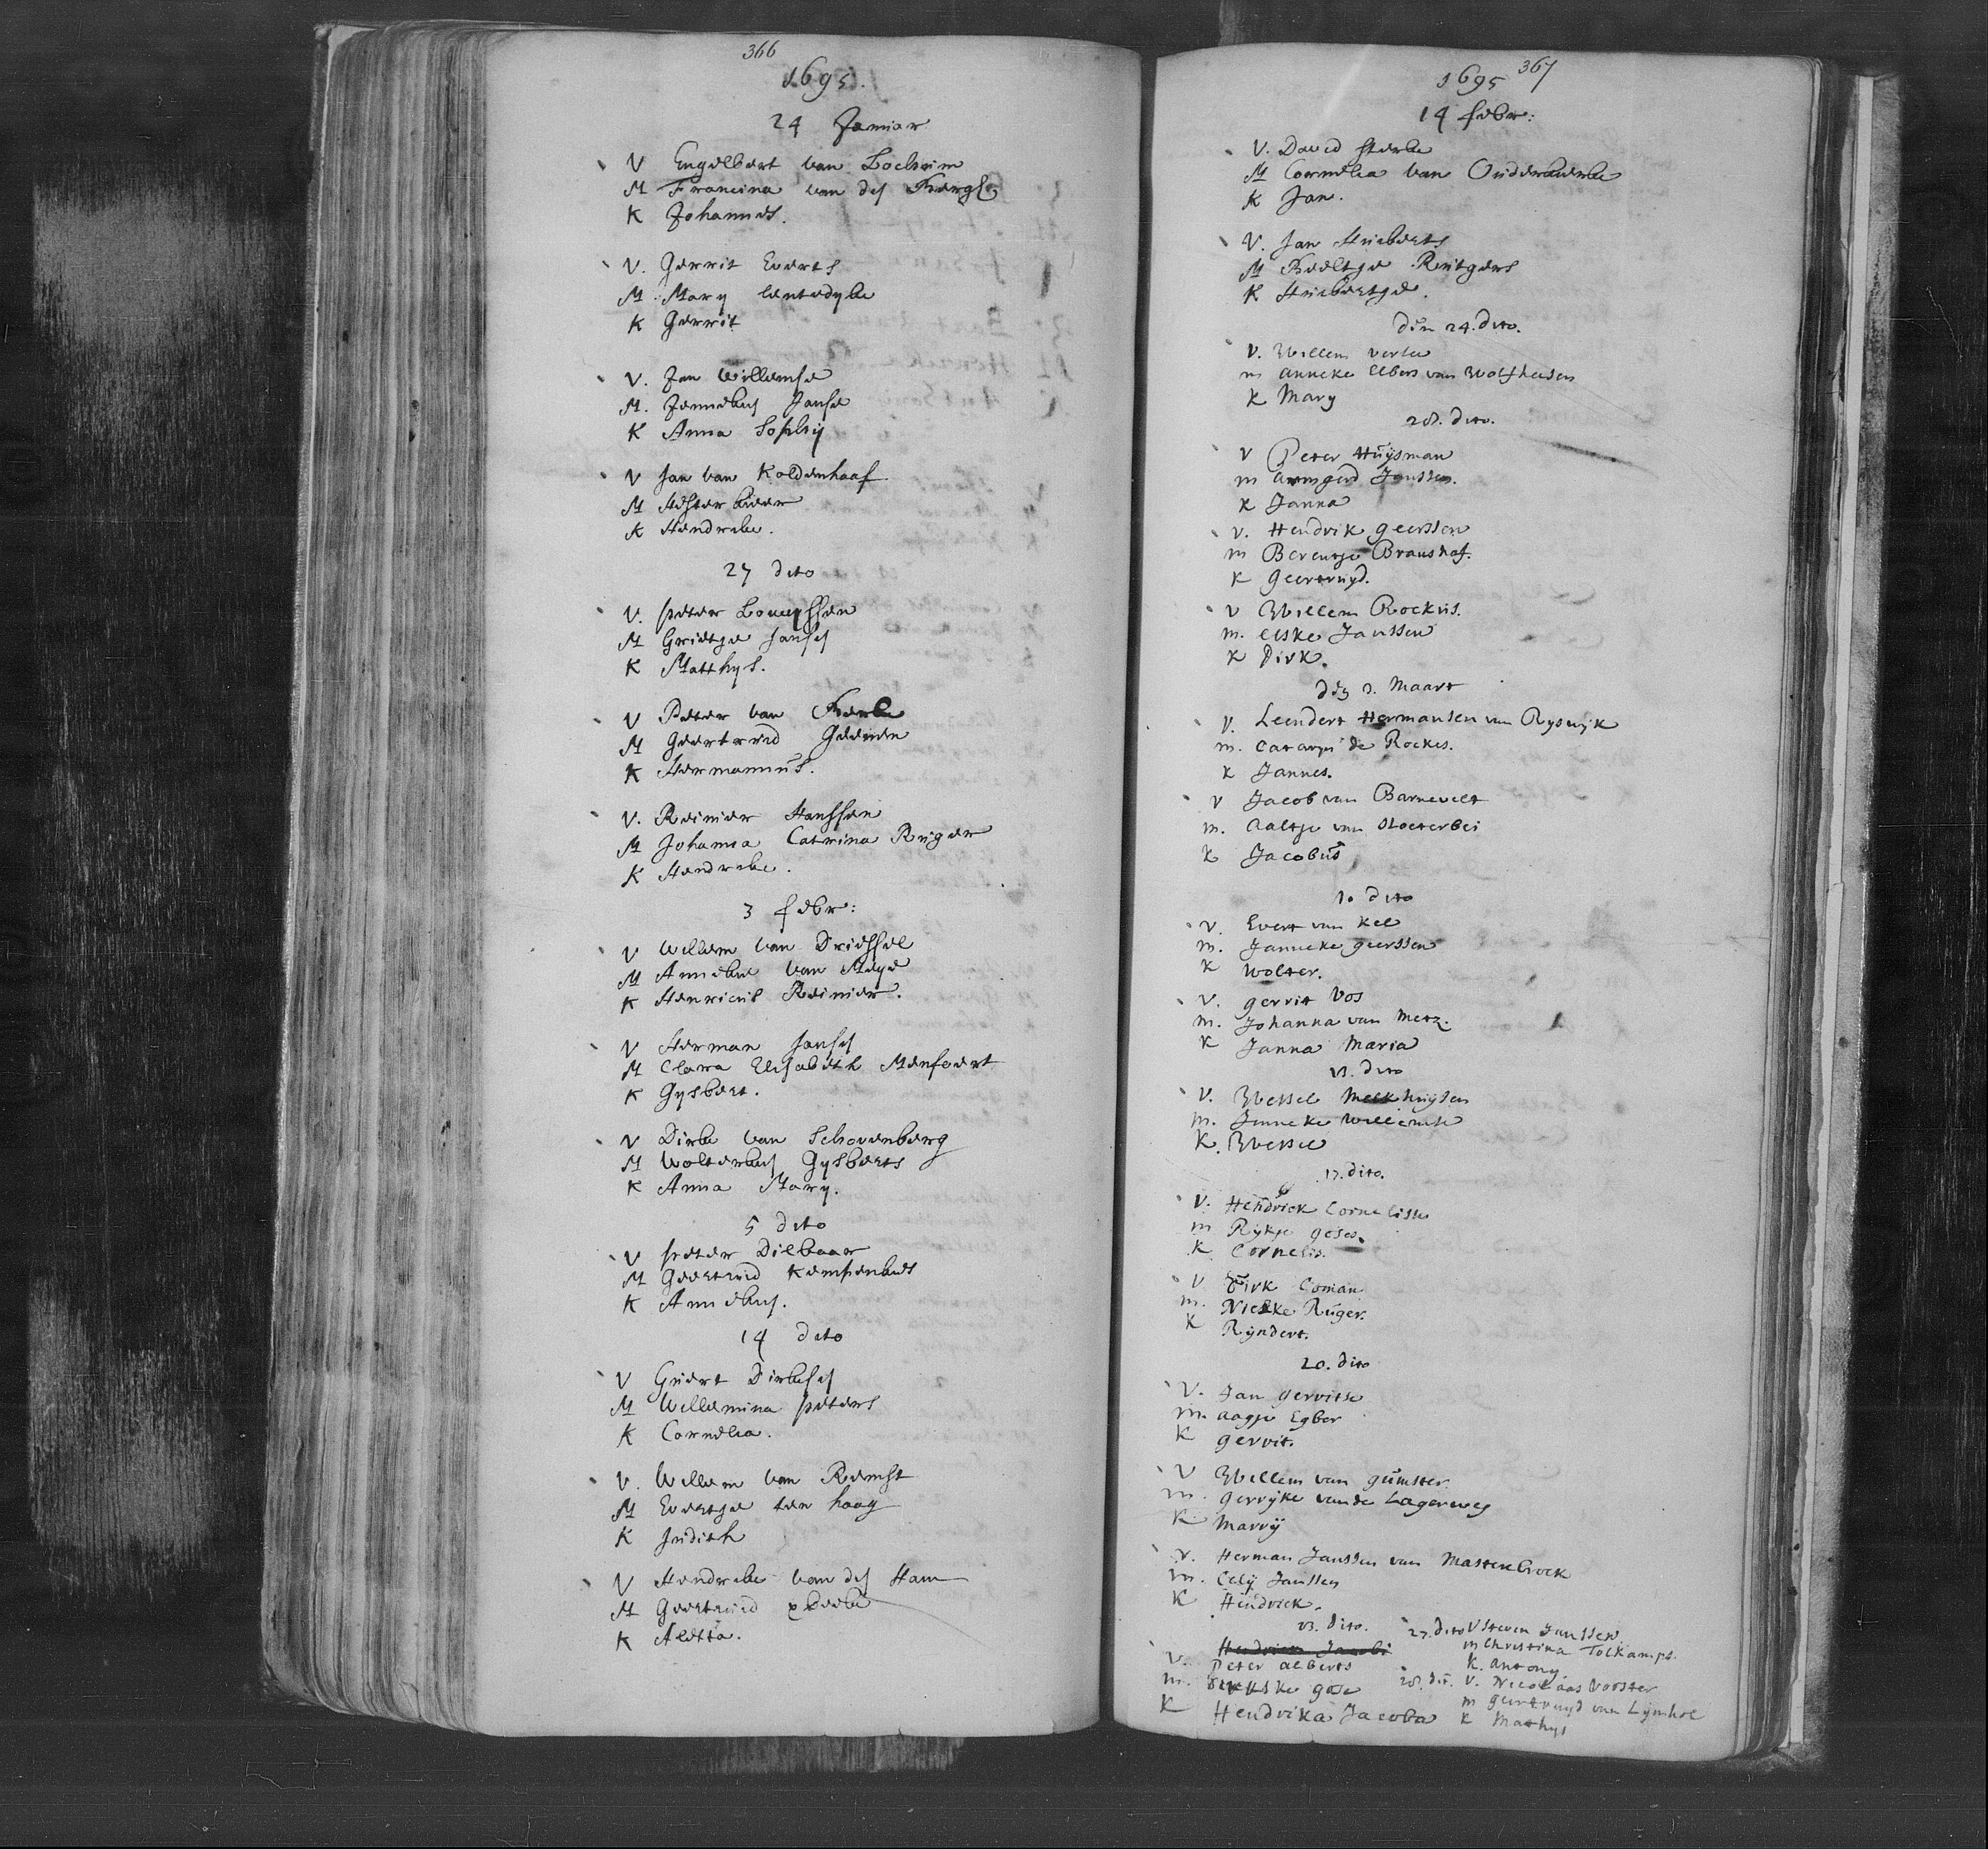 366
1695.
24 Januar
V Engelbert van Lochim
M Francina van der Bergh
K Johannes.
V. Gerrit Everts
M. Mary
K Gerrit
V. Jan Willemse
M. Jenneken Janse
K Anna Sophy
V Jan van Koldenhoof
M Hester
K Hendrik.
27 dito
V. Peter Louwyssen
M Grietje Jansen
K Matthys.
V Peter van
M Geertruid Geenen
K Hermannus.
V. Reinier Hanssen
M Johanna Catrina Ruger
K Hendrik.
3 febr:
V Willem van Driessel
M Anneke van Mege
K Henricus Reinier.
V Herman Jansen
M Clara Elisabeth Menfoort
K Gysbert.
V Dirk van Schovenberg
M Wolterken Gysberts
K Anna Mary.
5 dito
V Peter Dilbaar
M Geertruid
K Anneken.
14 dito
V Geurt Dirksen
M Willemina Peters
K Cornelia.
V. Willem van Reemst
M Evertje ten haag
K Judith
V Hendrik van den Ham
M Geertruid
K Aletta.
1695 367
14 febr:
V. David
M Cornelia van Ouderkerke
K Jan.
V. Jan Huiberts
M Beeltje Rutgers
K Huibertje.
Den 24. dito.
V. Willem
m anneke Elbers van Wolfheesen
K Mary
28. dito.
V Peter Huijsman
m Armgerd Janssen.
K Janna
V. Hendrik Geerssen
m Berentje Branshof.
K Geertruyd.
V Willem Rockus.
m. Elske Janssen
K Dirk.
Den 3. Maart
V. Leendert Hermansen van Ryswijk
m. de Rockes.
K Jannes.
V Jacob van Barnevelt
m. Aaltje van
K Jacobus
10 dito
V. Evert van Kel
m. Janneke Geerssen
K Wolter.
V. Gerrit Vos
m. Johanna van Metz.
K Janna Maria
13. dito
V. Wessel Melkhuysen
m. Janneke Willemse
K. Wessel
17. dito.
V. Hendrick Cornelisse
m Rykje
K Cornelis.
V Dirk Coman
m. Nieske Ruger.
K Ryndert.
20. dito
V. Jan Gerritse
m. Aagje Egber
K Gerrit.
V Willem van Gunster
m. Gerryke vande Lagerweg
K Marrij
V. Herman Janssen van Mastenbroek
m. Celij Janssen
K Hendrick.
23. dito.
V. Peter Alberts
m.
K Hendrika Jacoba
27. dito V Steven Janssen
m Christina Tolkamps.
K. Antony.
28. dit. V. Nicolaas Vorster
m Geertruyd van
K Mathys